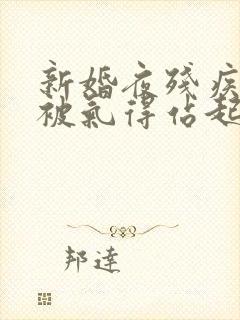 新婚夜残疾
被气得佔起
邦達